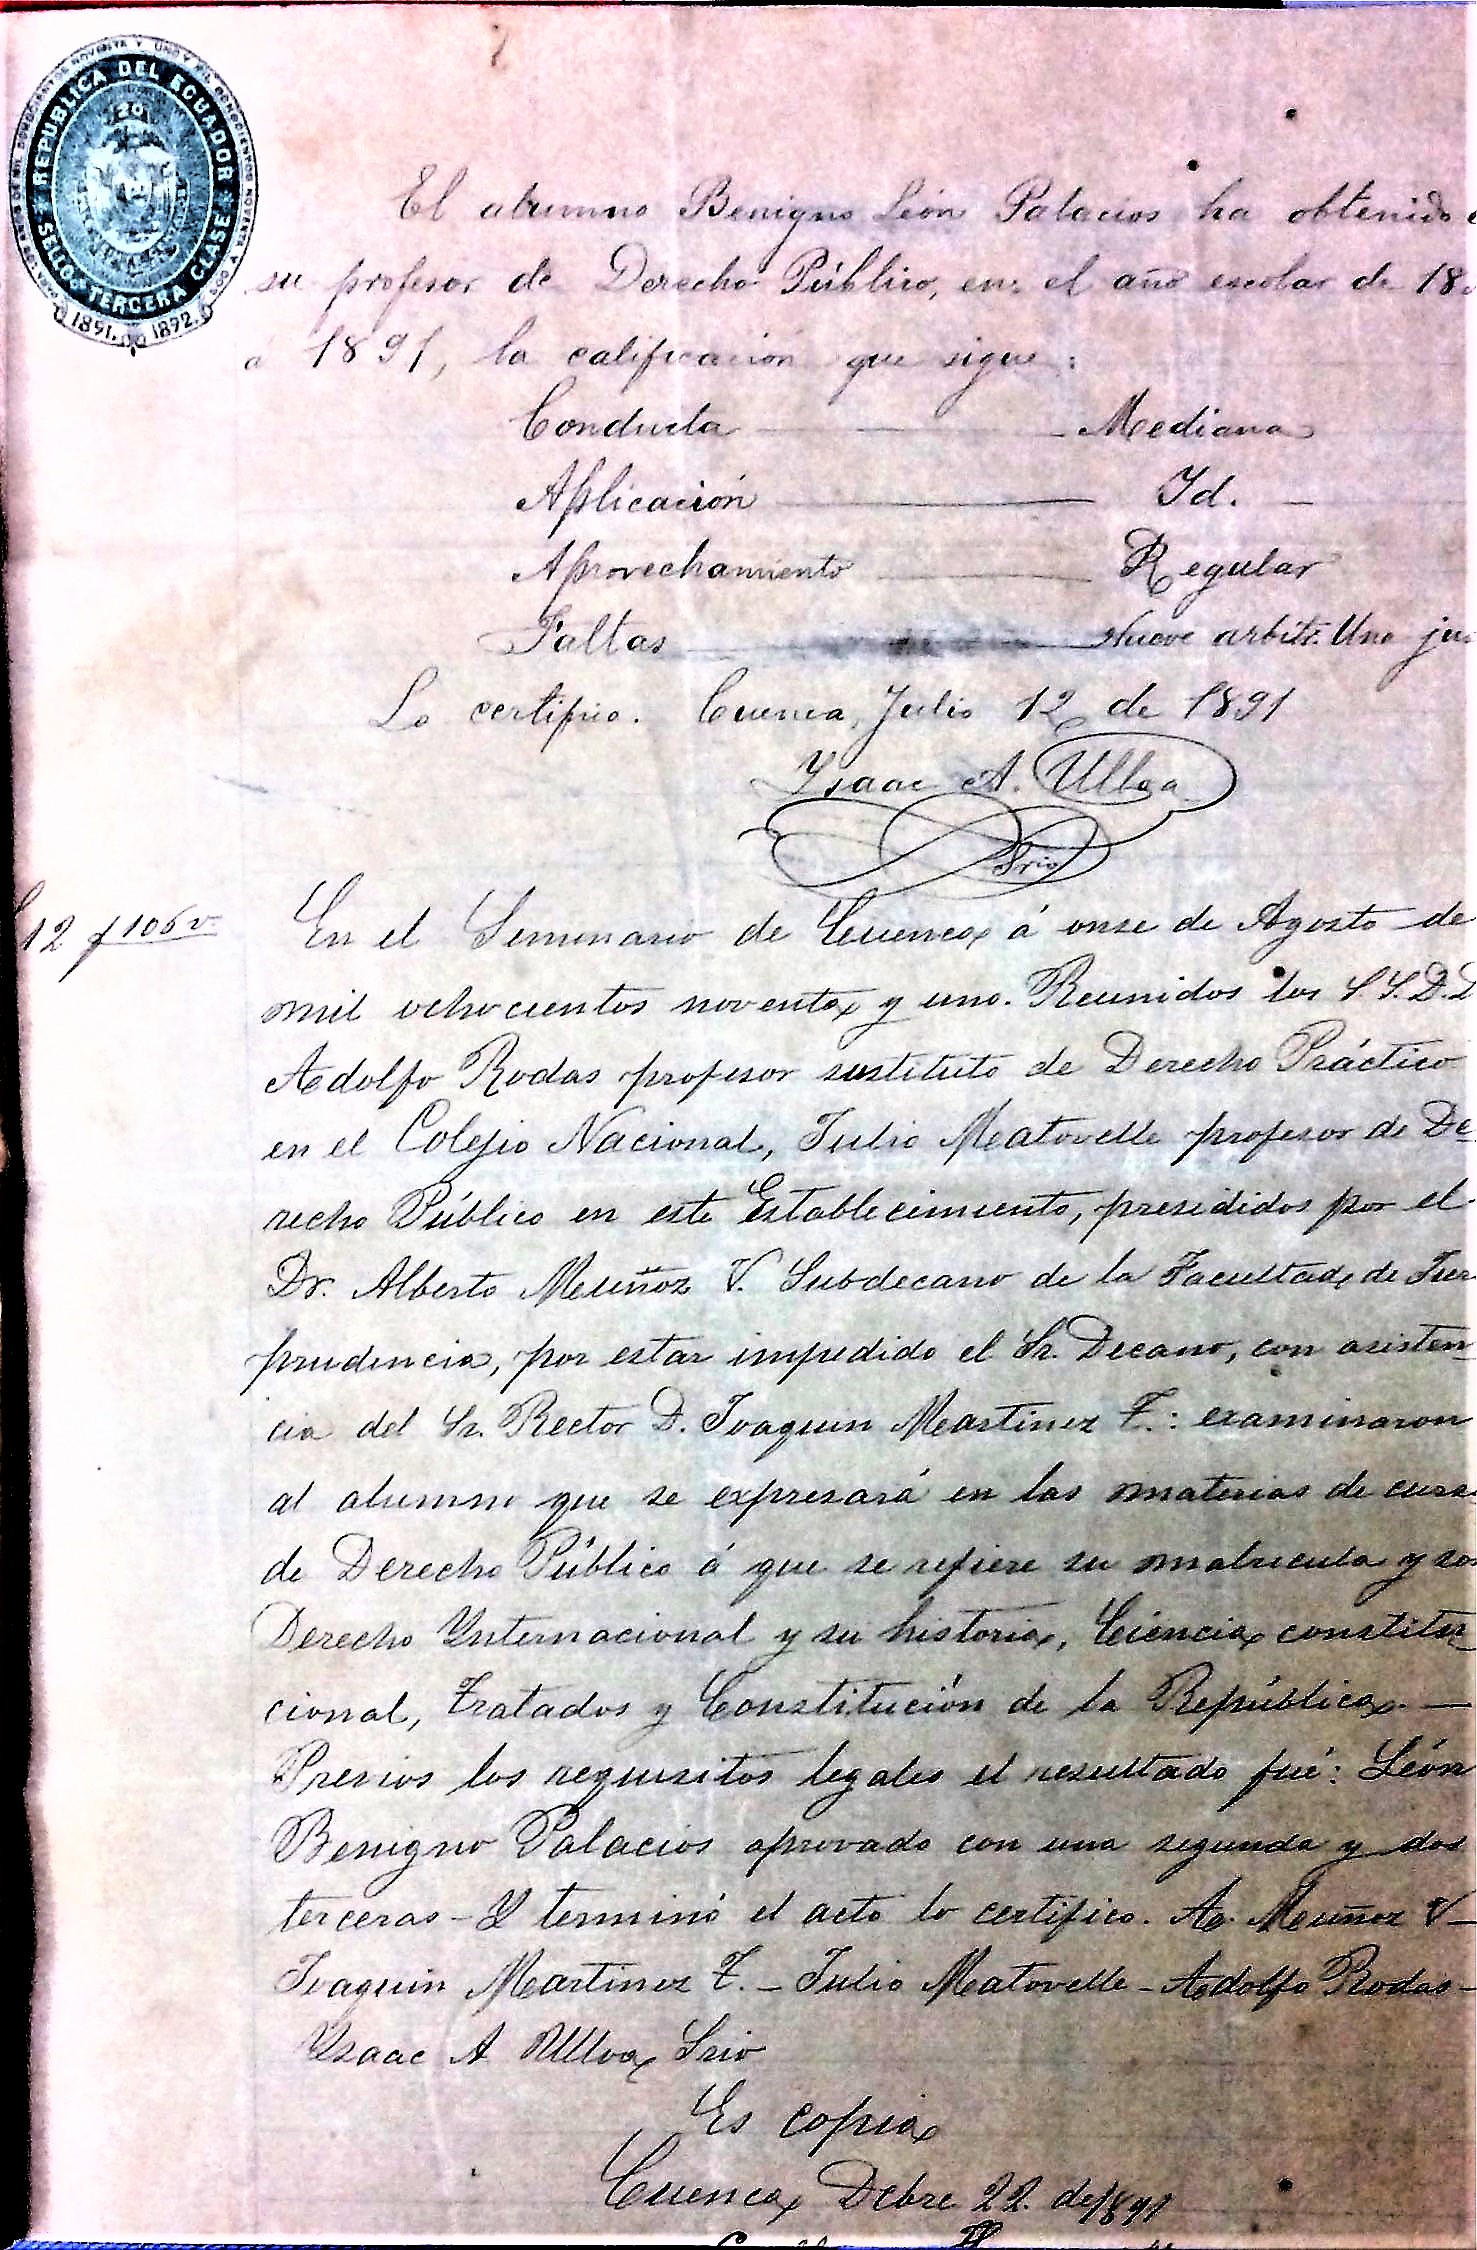 REPUBLICA DEL ECUADOR
SELLO TERCERA CLASE
20
1891. 1892.
El alumno Benigno León Palacios ha obtenido
su profesor de Derecho Público, en el año escolar de 18
á 1891, la calificación que sigue:
Conducta — Mediana
Aplicación — Id. —
Aprovechamiento — Regular
Faltas — Nueve arbitr. Una jus
Lo certifico. Cuenca, Julio 12 de 1891
Ysaac A. Ulloa
Srio
12 f 106 v.
En el Seminario de Cuenca á onse de Agosto de
mil ochocientos noventa y uno. Reunidos los S.S.D.D
Adolfo Rodas profesor sustituto de Derecho Práctico
en el Colejio Nacional, Julio Matovelle profesor de De
recho Público en este Establecimiento, presididos por el
Dr. Alberto Muñoz V. Subdecano de la Facultad de Jur
prudencia, por estar impedido el Sr. Decano, con asisten
cia del Sr. Rector D. Joaquin Martinez T.: examinaron
al alumno que se expresará en las materias de curs
de Derecho Público á que se refiere su matricula y so
Derecho Ynternacional y su historia, Ciencia constitu
cional, Tratados y Constitución de la República. —
Previos los requisitos legales el resultado fué: León
Benigno Palacios aprovado con una segunda y dos
terceras – Y terminó el acto lo certifico. A. Muñoz V –
Joaquin Martinez T. – Julio Matovelle – Adolfo Rodas –
Ysaac A Ulloa Srio
Es copia
Cuenca Dcbre 22. de 1891